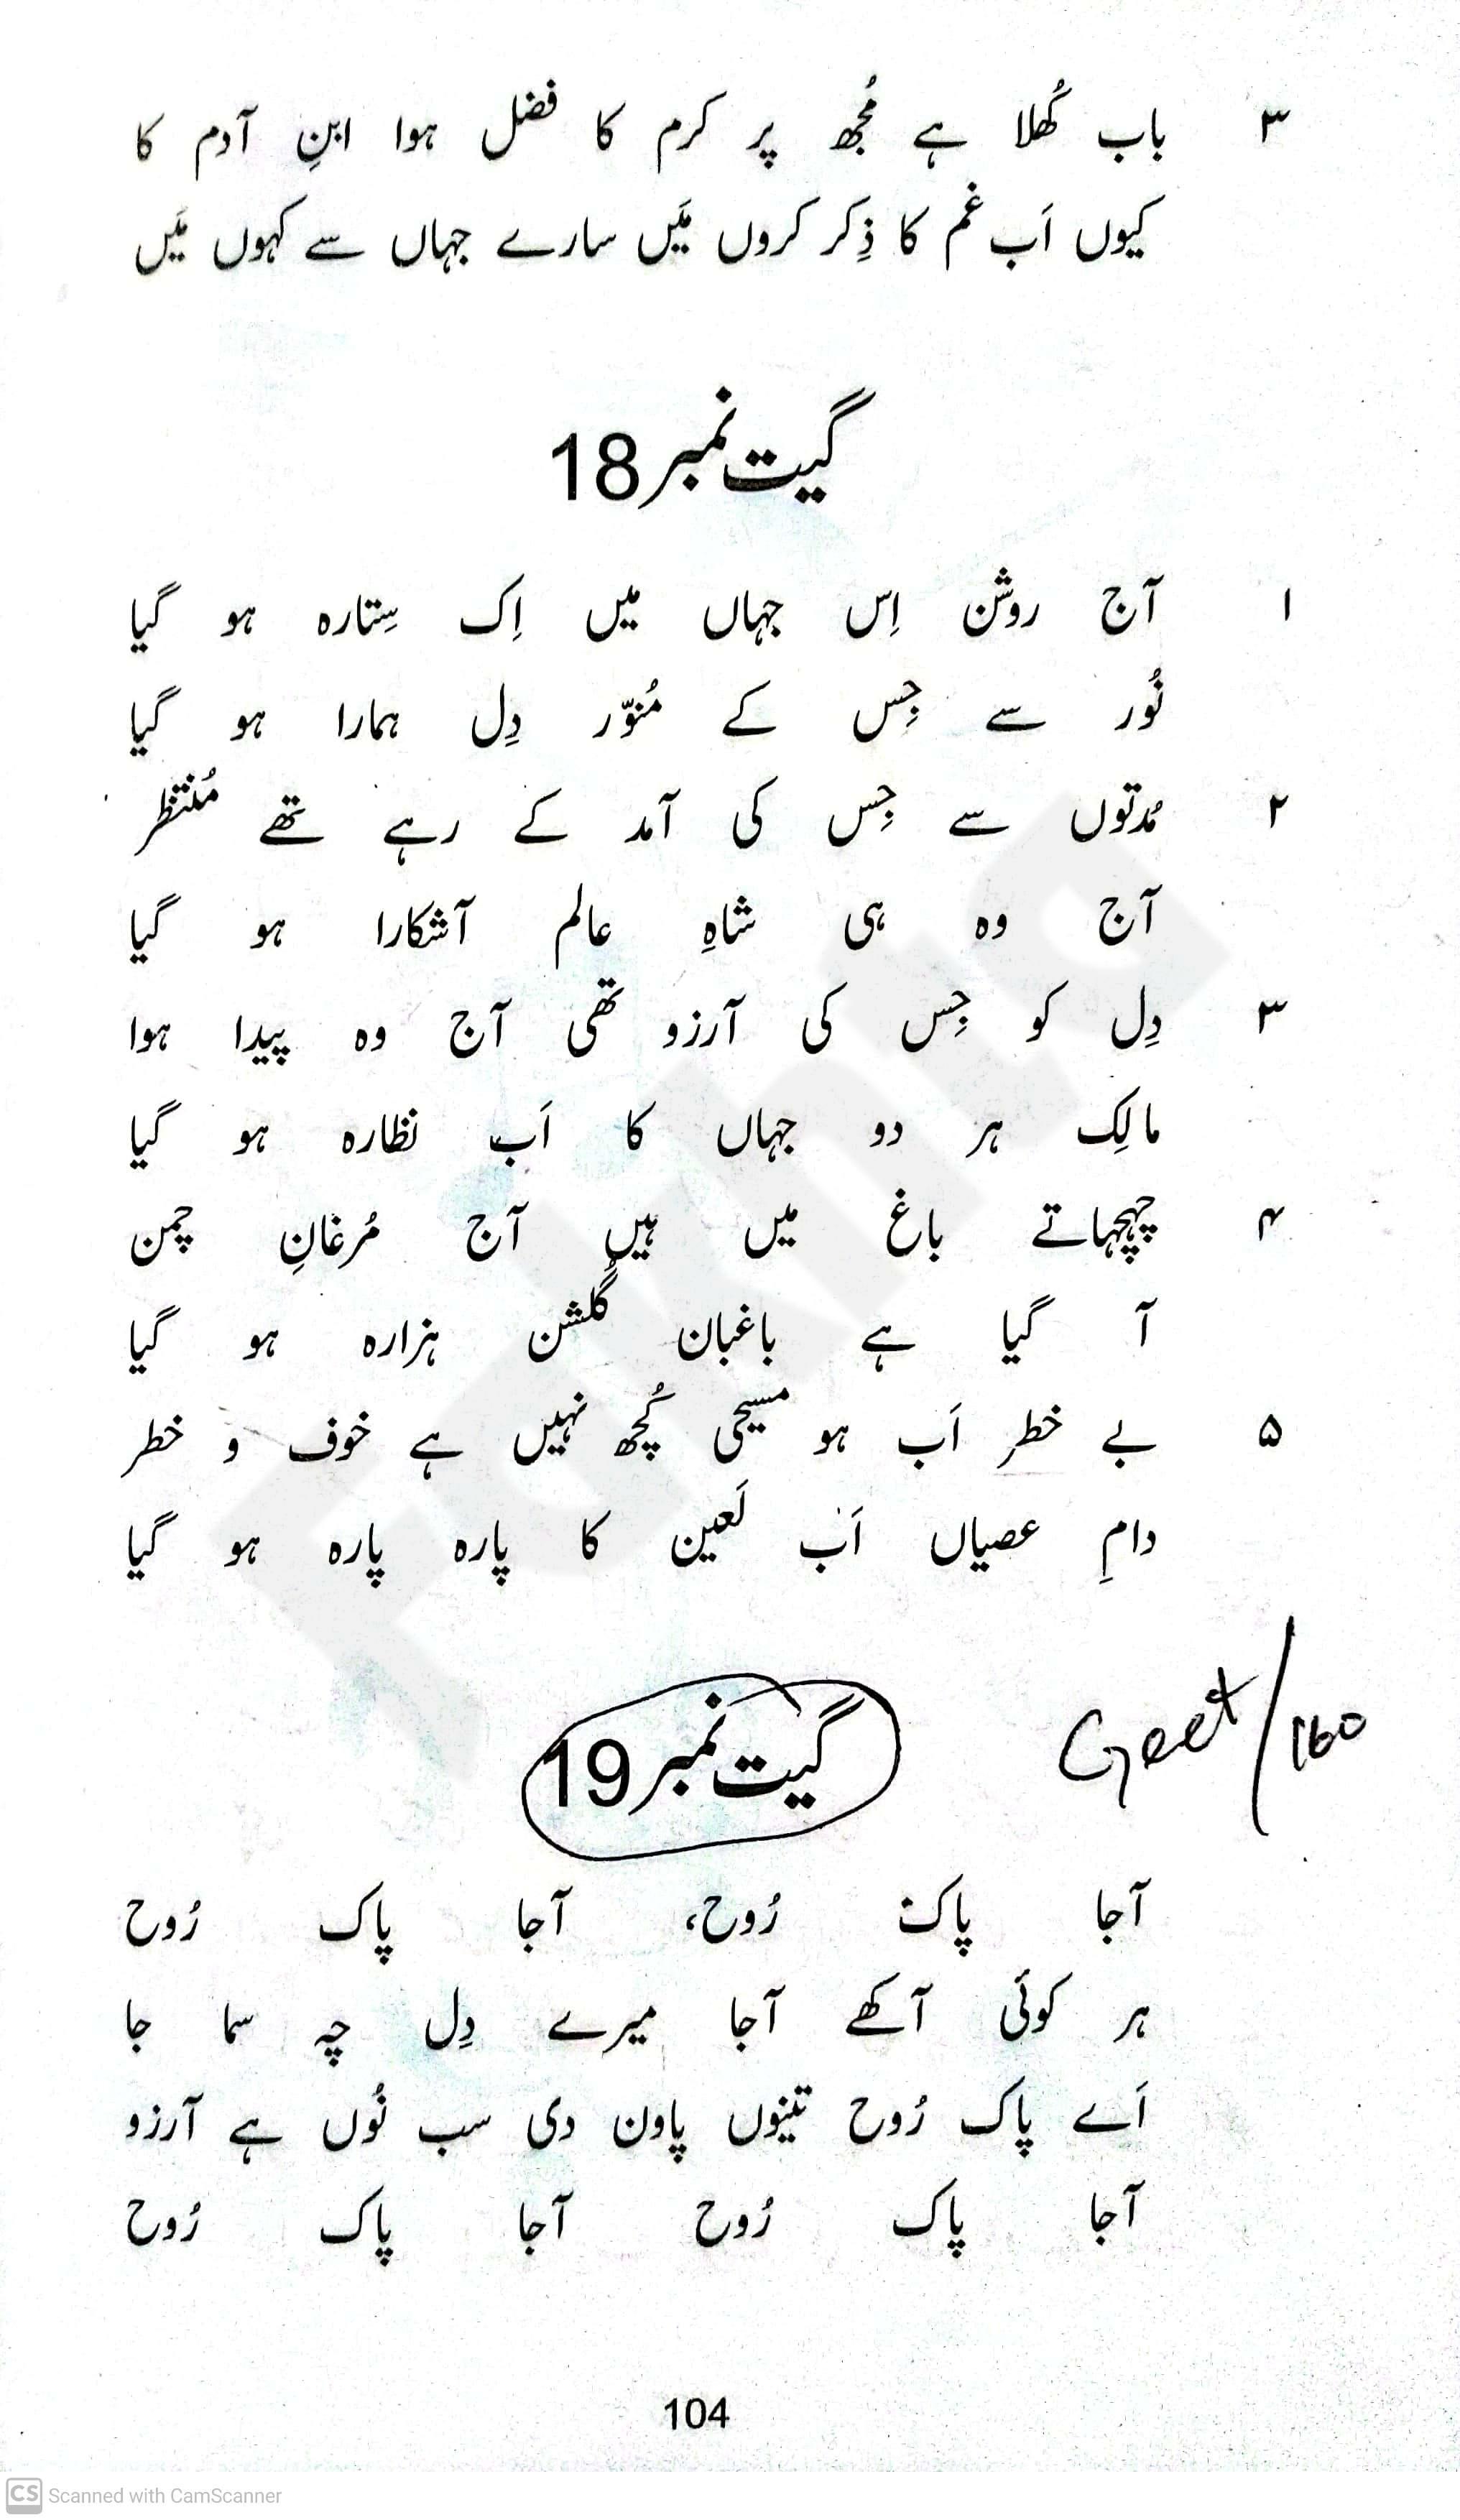 ۳ باب کُھلا ہے مُجھ پر کرم کا فضل ہوا ابنِ آدم کا
کیوں اَب غم کا ذِکر کروں مَیں سارے جہاں سے کہوں مَیں
گیت نمبر 18
۱ آج روشن اِس جہاں میں اِک سِتارہ ہو گیا
نُور سے جِس کے مُنوّر دِل ہمارا ہو گیا
۲ مُدتوں سے جِس کی آمد کے رہے تھے مُنتظر
آج وہ ہی شاہِ عالم آشکارا ہو گیا
۳ دِل کو جِس کی آرزو تھی آج وہ پیدا ہوا
مالِک ہر دو جہاں کا اَب نظارہ ہو گیا
۴ چہچہاتے باغ میں ہیں آج مُرغانِ چمن
آ گیا ہے باغبان گُلشن ہزارہ ہو گیا
۵ بے خطر اَب ہو مسیحی کُچھ نہیں ہے خوف و خطر
دامِ عصیاں اَب لَعین کا پارہ پارہ ہو گیا
گیت نمبر 19 Geet/160
آجا پاک رُوح، آجا پاک رُوح
ہر کوئی آکھے آجا میرے دِل چہ سما جا
اَے پاک رُوح تینوں پاون دی سب نُوں ہے آرزو
آجا پاک رُوح آجا پاک رُوح
104
CS Scanned with CamScanner
Fakhta